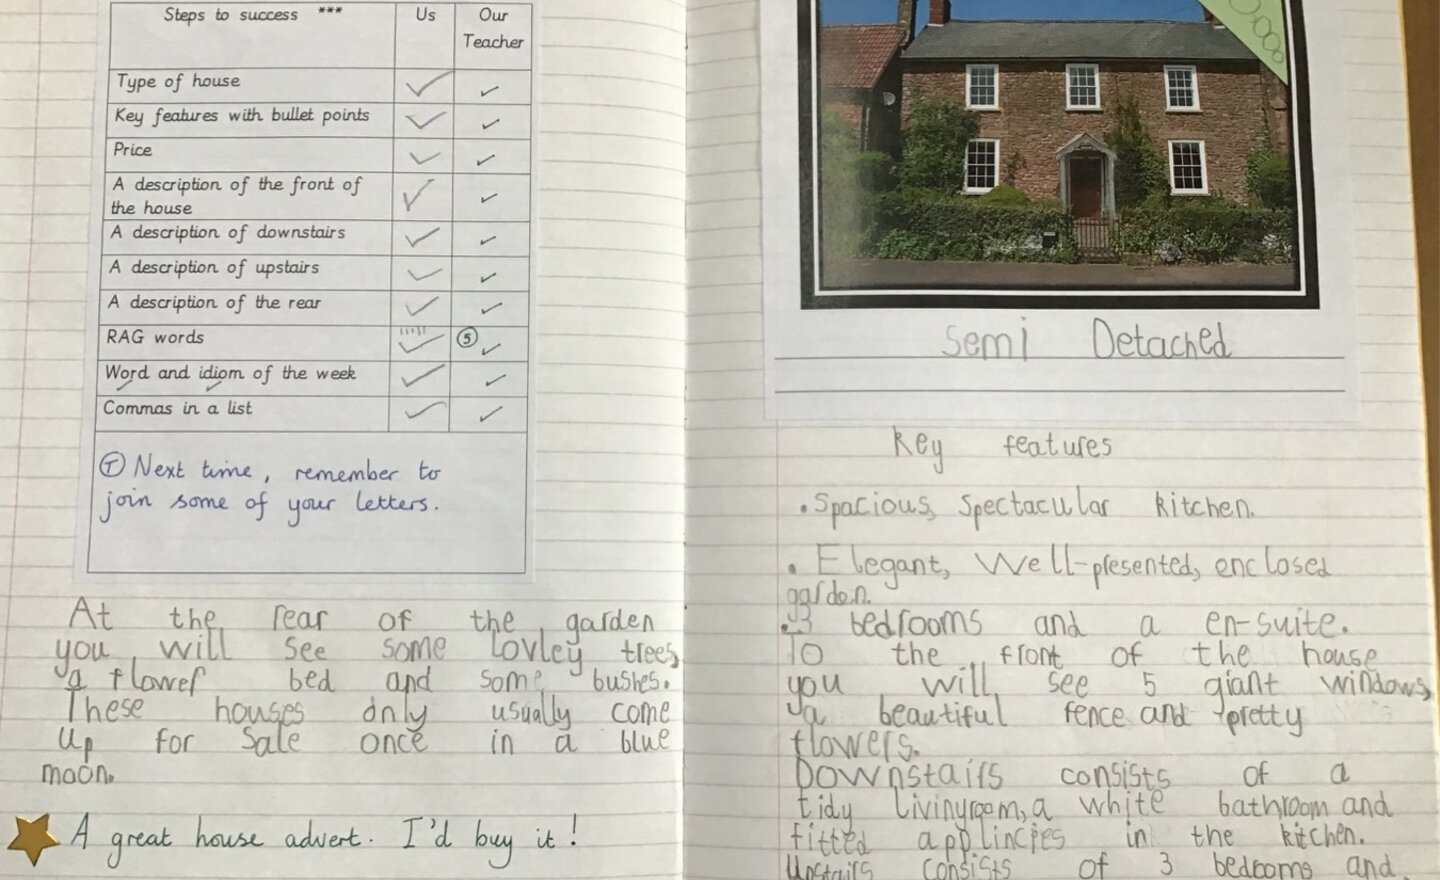 Steps to success *** Us Our Teacher
Type of house
Key features with bullet points
Price
A description of the front of
the house
A description of downstairs
A description of upstairs
A description of the rear
RAG words 5
Word and idiom of the week
Commas in a list
T Next time, remember to
join some of your letters.
At the rear of the garden
you will see some lovley trees,
a flower bed and some bushes.
These houses only usually come
up for sale once in a blue
moon.
A great house advert. I'd buy it!
Semi Detached
Key features
• Spacious, spectacular kitchen.
• Elegant, Well-presented, enclosed
garden.
• 3 bedrooms and a en-suite.
To the front of the house
you will see 5 giant windows,
a beautiful fence and pretty
flowers.
Downstairs consists of a
tidy livinyroom, a white bathroom and
fitted applincies in the kitchen.
Upstairs consists of 3 bedrooms and